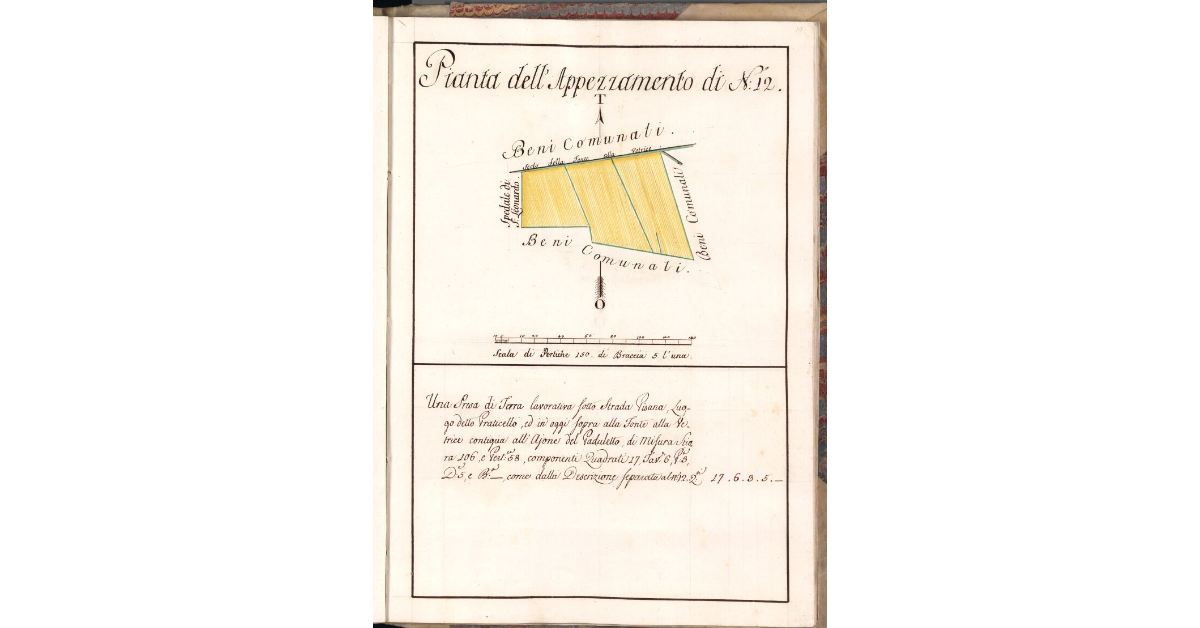 Pianta dell'Appezzamento di N.° 12.
T
Beni Comunali.
Strada della Fonte alla Vetrice
Spedale di
S. Leonardo.
Beni Comunali
Beni Comunali.
O
Scala di Pertiche 150. di Braccia 5 l'una.
Una Presa di Terra lavorativa sotto Strada Pisana, Luo-
go detto Praticello, ed in oggi sopra alla Fonte alla Ve-
trice contigua all'Ajone del Paduletto, di Misura
ra 106, e Pert.e 58, componenti Quadrati 17, Tav.e 6, P.e 3,
D.i 5, e B.a —, come dalla Descrizione separata al N.° 12. Q.i 17 . 6 . 3 . 5 . —